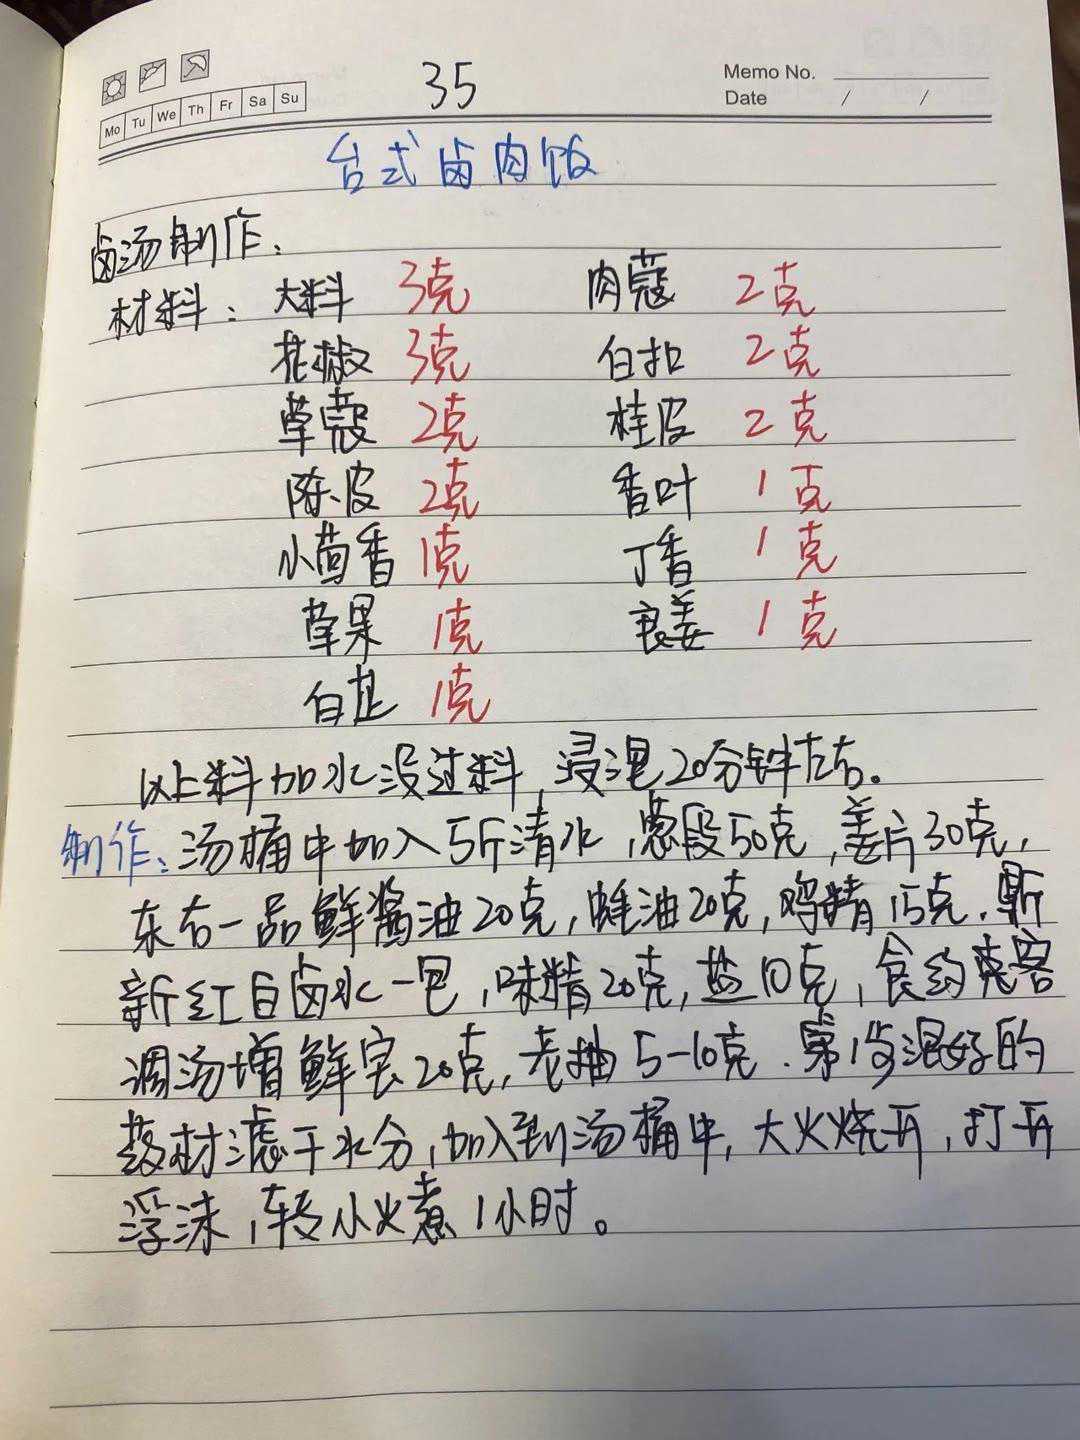 35
Memo No.
Mo Tu We Th Fr Sa Su
Date / /
台式卤肉饭
卤汤制作:
材料: 大料 3克 肉蔻 2克
花椒 3克 白扣 2克
草蔻 2克 桂皮 2克
陈皮 2克 香叶 1克
小茴香 1克 丁香 1克
草果 1克 良姜 1克
白芷 1克
以上料加水没过料,浸泡20分钟左右。
制作:汤桶中加入5斤清水,葱段50克,姜片30克,
东古一品鲜酱油20克,蚝油20克,鸡精15克,
新红白卤水一包,味精20克,盐10克,食约克客
调汤增鲜宝20克,老抽5-10克.第1步混好的
药材滤干水分,加入到汤桶中,大火烧开,打开
浮沫,转小火煮1小时。